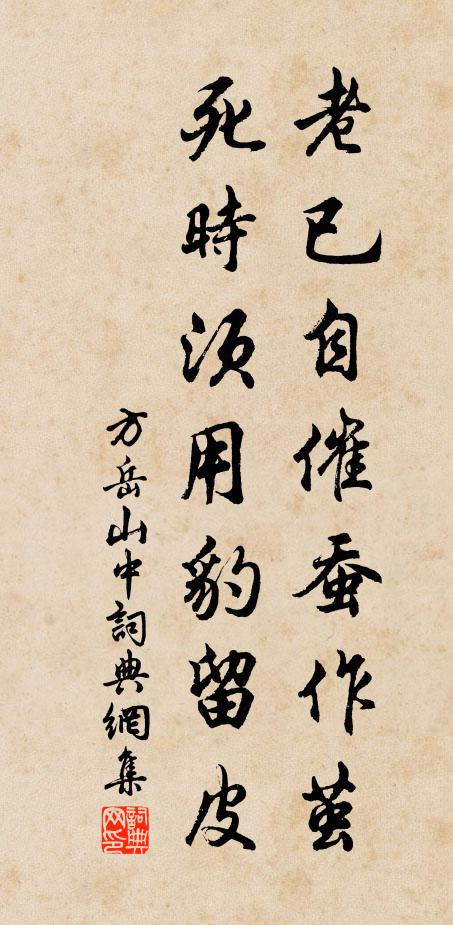 老已自催蚕作茧
死時須用豹留皮
方岳山中詞典網集
詞典網印